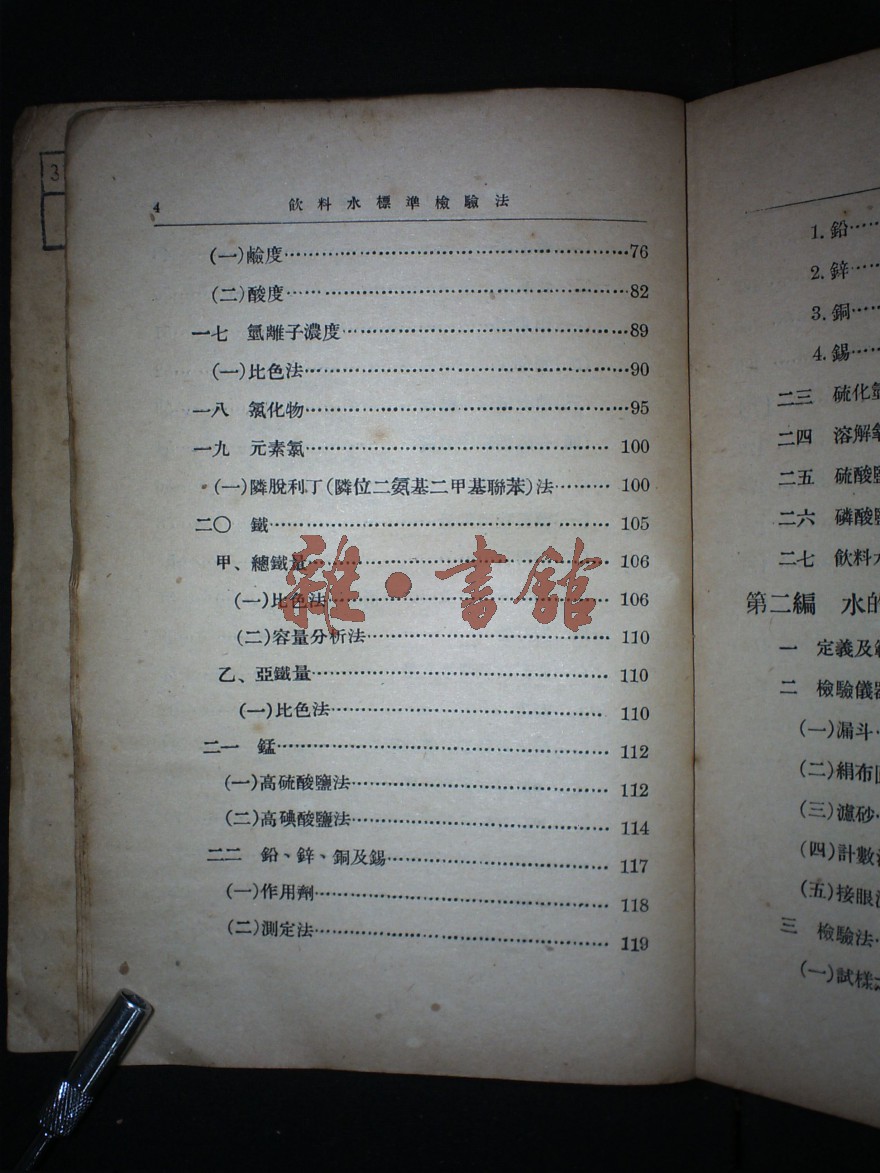 3
4 飲料水標準檢驗法
(一)鹼度 76
(二)酸度 82
一七 氫離子濃度 89
(一)比色法 90
一八 氯化物 95
一九 元素氯 100
(一)隣脫利丁(隣位二氨基二甲基聯苯)法 100
二〇 鐵 105
甲、總鐵量 106
(一)比色法 106
(二)容量分析法 110
乙、亞鐵量 110
(一)比色法 110
二一 錳 112
(一)高硫酸鹽法 112
(二)高碘酸鹽法 114
二二 鉛、鋅、銅及錫 117
(一)作用劑 118
(二)測定法 119
雜·書館
1. 鉛
2. 鋅
3. 銅
4. 錫
二三 硫化氫
二四 溶解氧
二五 硫酸鹽
二六 磷酸鹽
二七 飲料水
第二編 水的
一 定義及範
二 檢驗儀器
(一)漏斗
(二)絹布
(三)濾砂
(四)計數
(五)接眼
三 檢驗法
(一)試樣